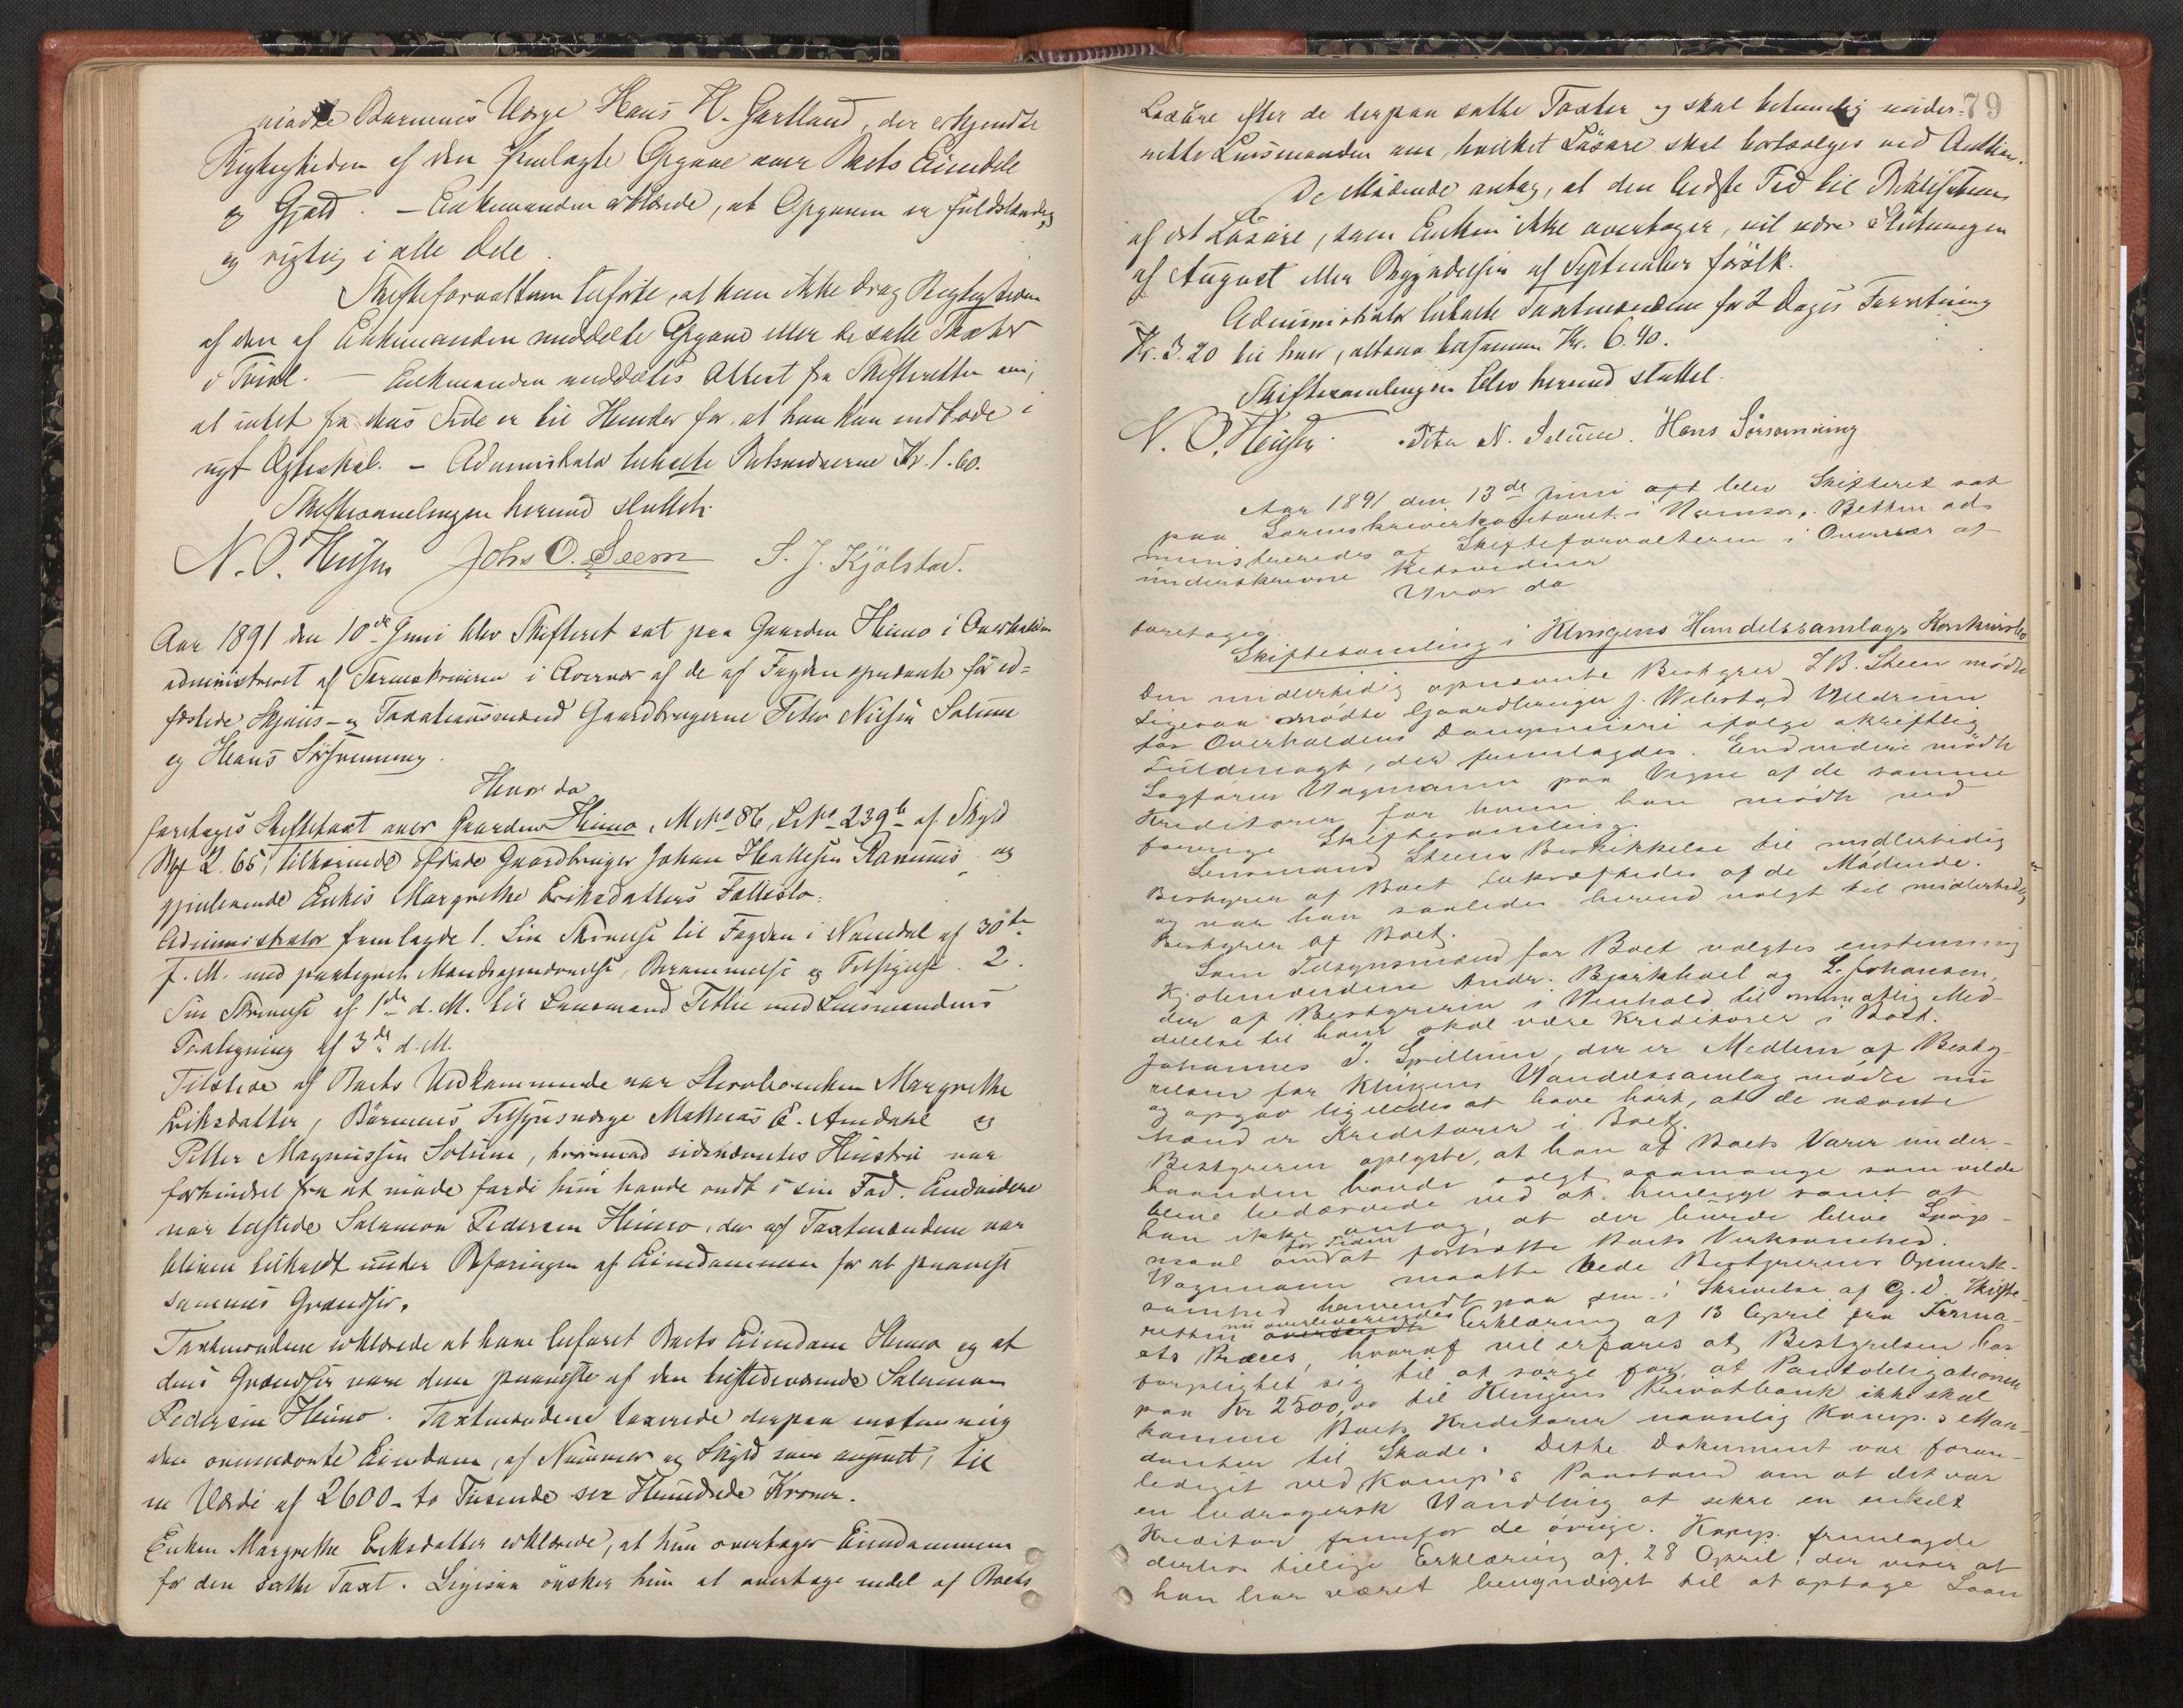 mødte Barnenes Værge Hans H. Gartland, der erkjendte
Rigtigheden af den fremlagte Opgave over Boets Eiendele
og Gjæld. – Enkemanden erklærede, at Opgaven er fuldstændig
og rigtig i alle Dele.
Skifteforvalteren tilførte, at han ikke drog Rigtigheden
af den af Enkemanden meddelte Opgave eller de satte Taxter
i Tvivl. – Enkemanden meddeltes Attest fra Skifteretten om,
at intet fra dens Side er til Hinder for, at han kan indtræde i
nyt Ægteskab. – Administrator tilkom Retsvidnerne Kr. 1.60.
Skiftesamlingen hermed sluttet.
Johs O. Seem S. J. Kjølstad.
Aar 1891 den 10de Juni blev Skifteret sat paa Gaarden Himo i Overhalden
administreret af Sorenskriveren i Overvær af de af Fogden opnævnte for ed-
fæstede Skjøns- og Taxationsmænd Gaardbrugerne Peter Nilsen Solum
og Hans Sørsomning.
Hvor da
foretoges Skiftetaxt over Gaarden Himo, M No 86, L No 239b af Skyld
Mrk 2.65, tilhørende afdøde Gaardbruger Johan Ranums og
gjenlevende Enkes Margrethe Eriksdatters Fællesbo.
Administrator fremlagde 1. Sin Skrivelse til Fogden i Namdal af 30te
f. M. med paategnet Mandsopnævnelse, Berammelse og Tilsigelse. 2.
Sin Skrivelse af 1ste d. M. til Lensmand Tetlie med Lensmandens
Paategning af 3die d. M.
Tilstede af Boets Vedkommende var Stervboenken Margrethe
Eriksdatter, Børnenes Tilsynsværge Mathias E. Amdahl og
Petter Magnussen Solum, hvorimod sidstnævntes Hustru var
forhindret fra at møde fordi hun havde ondt i sin Fod. Endvidere
var tilstede Salamon Pedersen Himo, der af Taxtmændene var
bleven tilkaldt under Befaringen af Eiendommen for at paavise
sammes Grændser.
Taxtmændene erklærede at have befaret Boets Eiendom Himo og at
dens Grændser vare dem paaviste af den tilstedeværende Salamon
Pedersen Himo. Taxtmændene taxerede derpaa enstemmig
den ovennævnte Eiendom, af Nummer og Skyld som anført, til
en Værdi af 2600 – to Tusinde sex Hundrede Kroner.
Enken Margrethe Eriksdatter erklærede, at hun overtager Eiendommen
for den satte Taxt. Ligesaa ønsker hun at overtage endel af Boets
79
Løsøre efter de derpaa satte Taxter og skal betimelig under-
rette Lensmanden om, hvilket Løsøre skal bortsælges ved Auktion.
De Mødende antog, at den bedste Tid til Realisation
af det Løsøre, som Enken ikke overtager, vil være Slutningen
af August eller Begyndelsen af September førstk.
Administrator tilkom Taxtmændene for 2 Dages Forretning
Kr. 3.20 til hver, altsaa tilsammen Kr. 6.40.
Skiftesamlingen blev hermed sluttet.
Peter N. Solum. Hans Sørsomning
Aar 1891 den 13de Juni blev Skifteret sat
paa Sorenskriverkontoret i Namsos. Retten ad-
ministreredes af Skifteforvalteren i Overvær af
underskrevne Retsvidner
Hvor da
foretoges
Skiftesamling i Klingens Handelssamlags Konkursbo
Den midlertidig opnævnte Bestyrer L B. Steen mødte
Ligesaa mødte Gaardbruger J. Vibstad
for Overhaldens Dampmeieri ifølge skriftlig
Fuldmagt, der fremlagdes. Endvidere mødte
Sagfører Wagmann paa Vegne af de samme
Kreditorer for hvem han mødte ved
forrige Skiftesamling.
Lensmand Steens Beskikkelse til midlertidig
Bestyrer af Boet bekræftedes af de Mødende.
og var han saaledes herved valgt til midlertidig
Bestyrer af Boet.
Som Tilsynsmænd for Boet valgtes enstemmig
Kjøbmændene Andr. Bjørkhoel og L. Johansen,
der af Bestyreren i Henhold til mundtlig Med-
delelse til ham skal være Kreditorer i Boet.
Johannes J. Spillum, der er Medlem af Besty-
relsen for Klingens Handelssamlag mødte nu
og opgav ligeledes at have hørt, at de nævnte
Mænd er Kreditorer i Boet.
Bestyreren oplyste, at han af Boets Varer under-
haanden havde solgt saamange som vilde
blive bedærvede ved at henligge samt at
han ikke antog, at der burde blive Spørgs-
maal om for Tiden at fortsætte Boets Virksomhed.
Wagmann maatte bede Bestyrerens Opmærk-
somhed henvendt paa den i Skrivelse af G. D. Skifte-
retten nu overleverede oversendte Erklæring af 13 April fra Firma-
ets Præces, hvoraf vil erfares at Bestyrelsen har
forpligtet sig til at sørge for, at Pantobligationen
paa Kr 2500,00 til Klingens Privatbank ikke skal
komme Boets Kreditorer navnlig Komp.s Man-
danter til Skade. Dette Dokument var foran-
lediget ved Komp's Paastand om at det var
en bedragersk Handling at sikre en enkelt
Kreditor fremfor de øvrige. Komp. fremlagde
derhos tillige Erklæring af 28 April, der viser at
han har været bemyndiget til at optage Laan